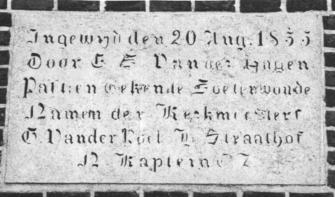 Ingewyd den 20 Aug. 1855
Door E E Van der Hagen
Pastr en Dekende Soeterwoude
Namen der Kerkmeesters
G. Van der Poel L. Straathof
N Kaptein C Z